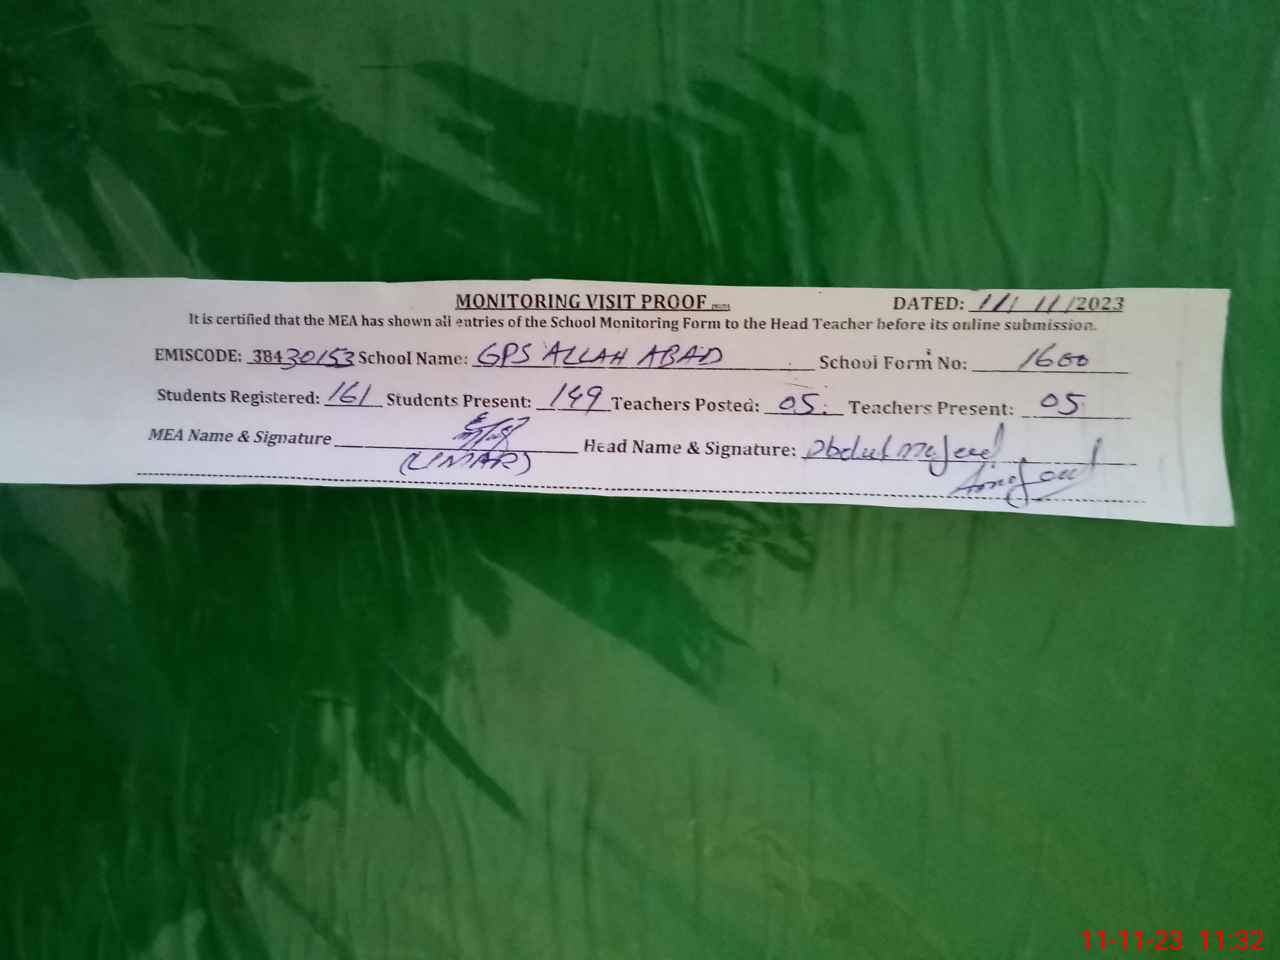 MONITORING VISIT PROOF
DATED: 11/11/2023
It is certified that the MEA has shown all entries of the School Monitoring Form to the Head Teacher before its online submission.
EMISCODE: 38430153 School Name: GPS ALLAH ABAD School Form No: 1600
Students Registered: 161 Students Present: 149 Teachers Posted: 05 Teachers Present: 05
MEA Name & Signature Head Name & Signature: Abdul Majeed
(UMAR)
11-11-23 11:32